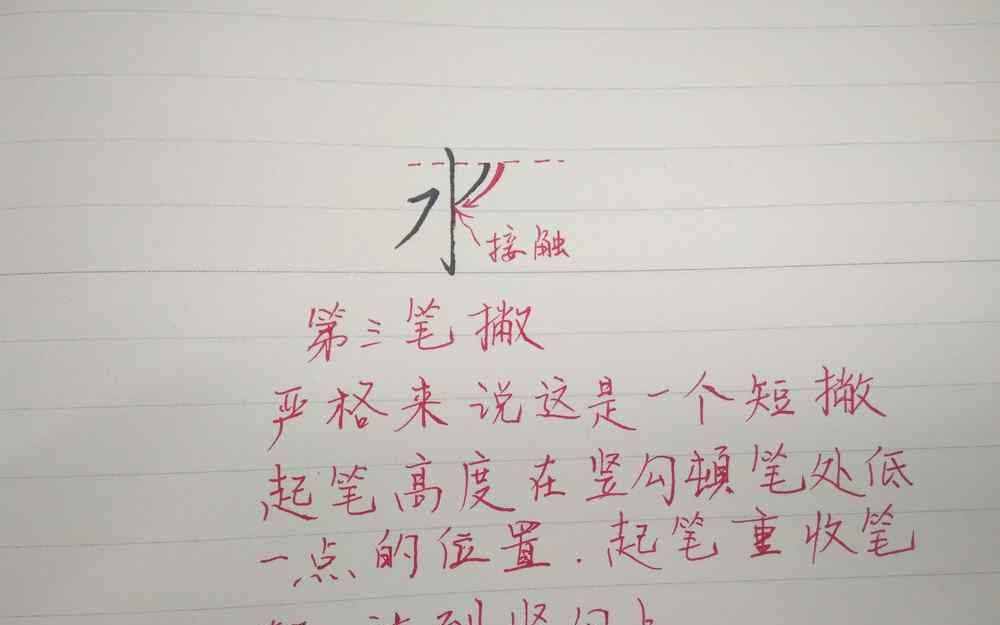 水
接触
第三笔撇
严格来说这是一个短撇
起笔高度在竖勾顿笔处低
一点的位置.起笔重收笔